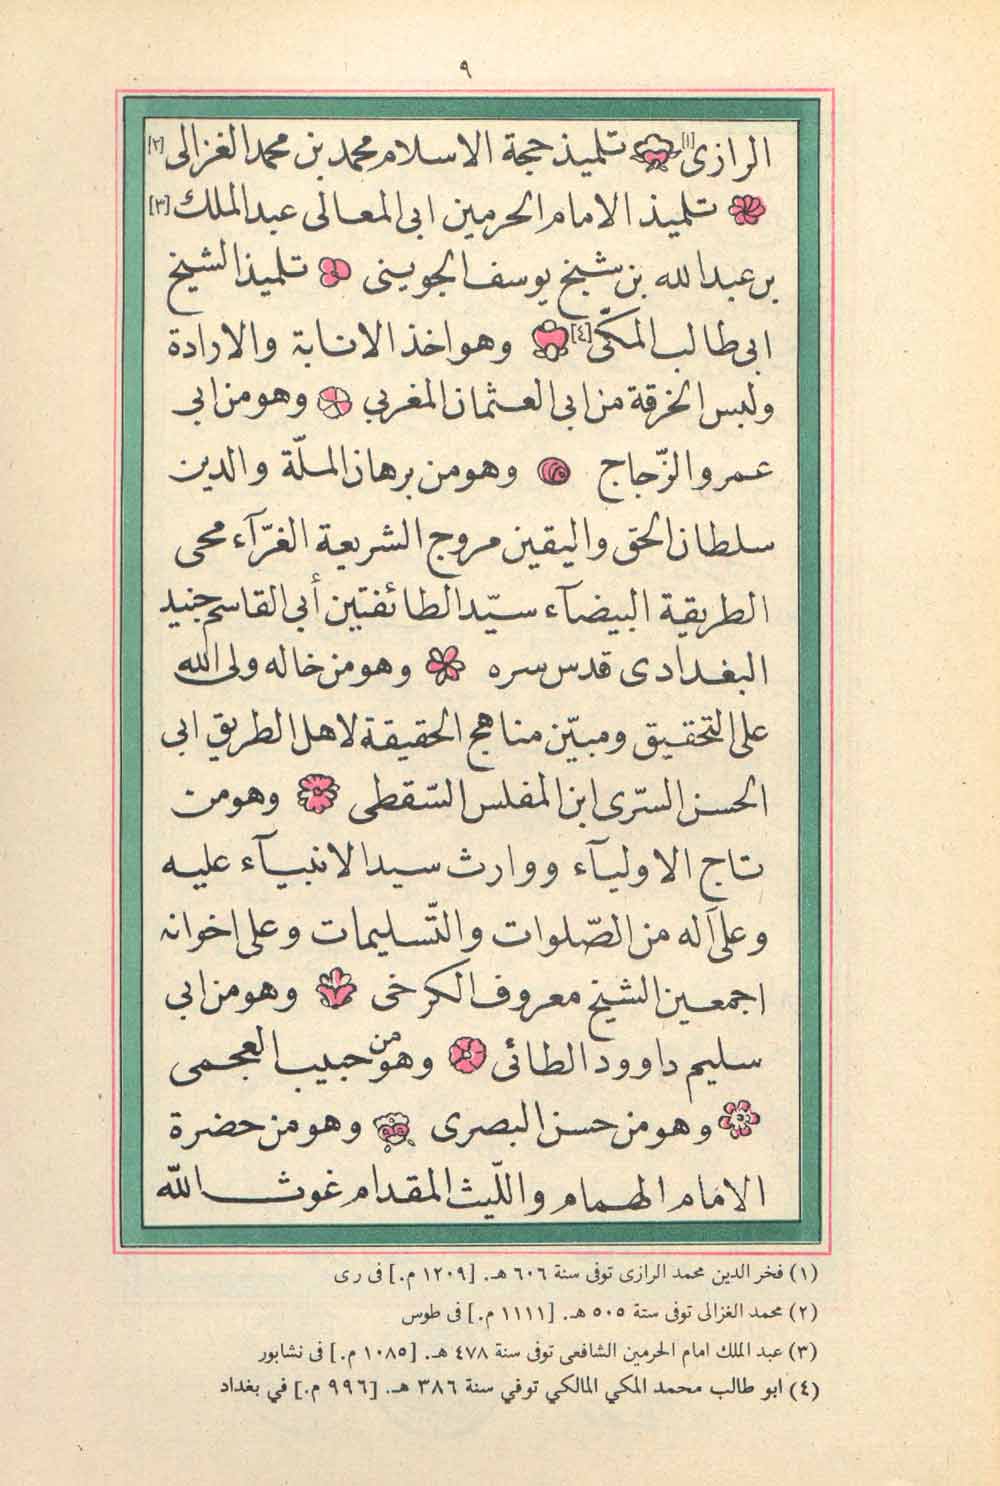 ٩
الرازى[١] تلميذ حجة الاسلام محمد بن محمد الغزالى[٢]
تلميذ الامام الحرمين ابى المعالى عبد الملك[٣]
بن عبد الله بن شيخ يوسف الجوينى تلميذ الشيخ
ابى طالب المكّى[٤] وهو اخذ الانابة والارادة
ولبس الخرقة من ابى العثمان المغربي وهو من ابى
عمرو الزّجاج وهو من برهان الملّة والدين
سلطان الحق واليقين مروج الشريعة الغرّآء محى
الطريقة البيضآء سيّد الطائفتين أبي القاسم جنيد
البغدادى قدس سره وهو من خاله ولى الله
على التحقيق ومبيّن مناهج الحقيقة لاهل الطريق ابى
الحسن السّرى ابن المفلس السّقطى وهو من
تاج الاوليآء ووارث سيد الانبيآء عليه
وعلى آله من الصّلوات والتّسليمات وعلى اخوانه
اجمعين الشيخ معروف الكرخى وهو من ابى
سليم داوود الطائى وهو من حبيب العجمى
وهو من حسن البصرى وهو من حضرة
الامام الهمام والليّث المقدام غوث الله
(١) فخر الدين محمد الرازى توفى سنة ٦٠٦ هـ. [١٢٠٩ م.] فى رى
(٢) محمد الغزالى توفى ستة ٥٠٥ هـ. [١١١١ م.] فى طوس
(٣) عبد الملك امام الحرمين الشافعى توفى سنة ٤٧٨ هـ. [١٠٨٥ م.] فى نشابور
(٤) ابو طالب محمد المكي المالكي توفي سنة ٣٨٦ هـ. [٩٩٦ م.] في بغداد